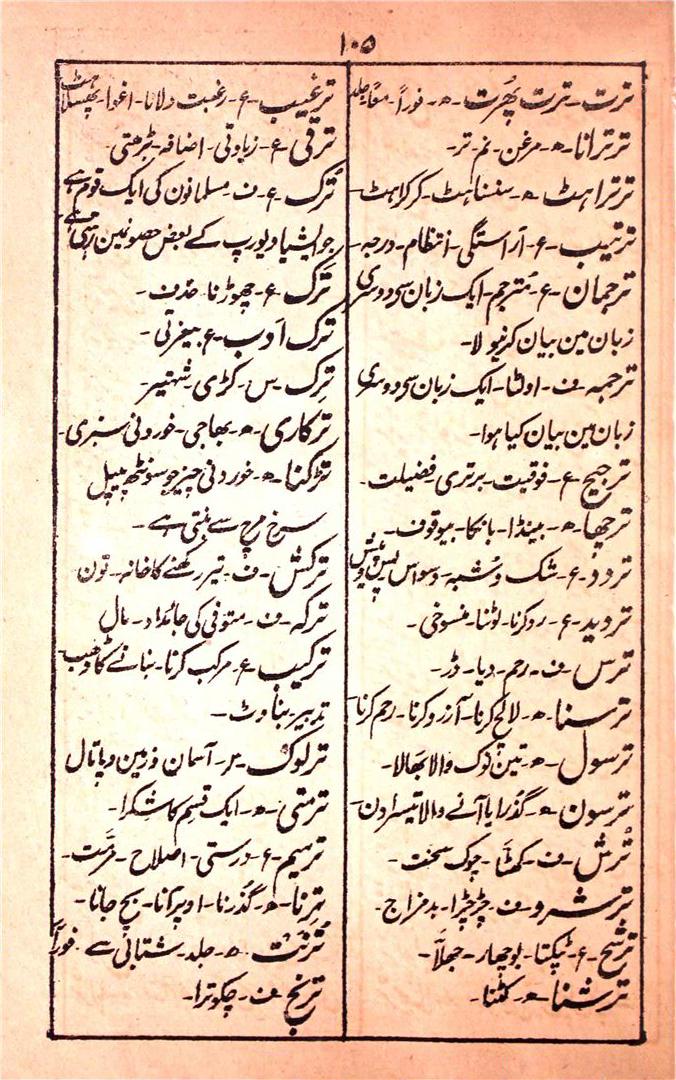 ۱۰۵
ترت۔ ترت پھُرت۔ ھ۔ فوراً۔ معاً۔ جلد
ترترانا۔ ھ۔ مرغن۔ نم۔ تر۔
ترتراہٹ۔ ھ۔ سنسناہٹ۔ کرکراہٹ۔
ترتیب۔ ع۔ آراستگی۔ انتظام۔ درجہ۔
ترجمان۔ ع۔ مُترجم۔ ایک زبان سی دوسری
زبان مین بیان کرنیوالا۔
ترجمہ۔ ف۔ اولٹا۔ ایک زبان سی دوسری
زبان مین بیان کیا ہوا۔
ترجیح۔ ع۔ فوقیت۔ برتری۔ فضیلت۔
ترچھا۔ ھ۔ بینڈا۔ بانکا۔ بیوقوف۔
تردد۔ ع۔ شک و شُبہ۔ وسواس۔ پس و پیش
تردید۔ ع۔ رد کرنا۔ لوٹنا۔ منسوخی۔
ترس۔ ف۔ رحم۔ دیا۔ ڈر۔
ترسنا۔ ھ۔ لالچ کرنا۔ آرزو کرنا۔ رحم کرنا
ترسول۔ ھ۔ تین نوک والا بھالا۔
ترسون۔ ھ۔ گذرا یا آنے والا تیسرا دن۔
تُرش۔ ف۔ کھٹّا۔ چوک۔ سخت۔
ترشرو۔ ف۔ چڑچڑا۔ بدمزاج۔
ترشّح۔ ع۔ ٹپکتا۔ بوچھار۔ جھلّا۔
ترشنا۔ ھ۔ کٹنا۔
ترغیب۔ ع۔ رغبت دلانا۔ اغوا۔ پھسلاہٹ
ترقی۔ ع۔ زیادتی۔ اضافہ۔ بڑھتی۔
تُرک۔ ع۔ ف۔ مسلمانون کی ایک قوم ہے
جو ایشیا و یورپ کے بعض حصونمین رہتی ہے
ترک۔ ع۔ چھوڑنا۔ حذف۔
ترک ادب۔ ع۔ بیعزتی۔
ترک۔ س۔ کڑی۔ شہتیر۔
ترکاری۔ ھ۔ بھاجی۔ خوردنی سبزی۔
ترکنا۔ ھ۔ خوردنی چیز جو سونٹھ پیپل
سرخ مرچ سے بنتی ہے۔
ترکش۔ ف۔ تیر رکھنے کا خانہ۔ تون
ترکہ۔ ف۔ متوفی کی جائداد۔ مال
ترکیب۔ ع۔ مرکب کرنا۔ بنانے کا ڈھب۔
تدبیر۔ بناوٹ۔
ترلوک۔ س۔ آسمان و زمین و پاتال
ترمتی۔ ھ۔ ایک قسم کا شکرا۔
ترمیم۔ ع۔ درستی۔ اصلاح۔ مرمّت۔
ترنا۔ ھ۔ گذرنا۔ اوپر آنا۔ بچ جانا۔
تُرنت۔ ھ۔ جلد۔ شتابی سے۔ فوراً
ترنج۔ ف۔ چکوترا۔